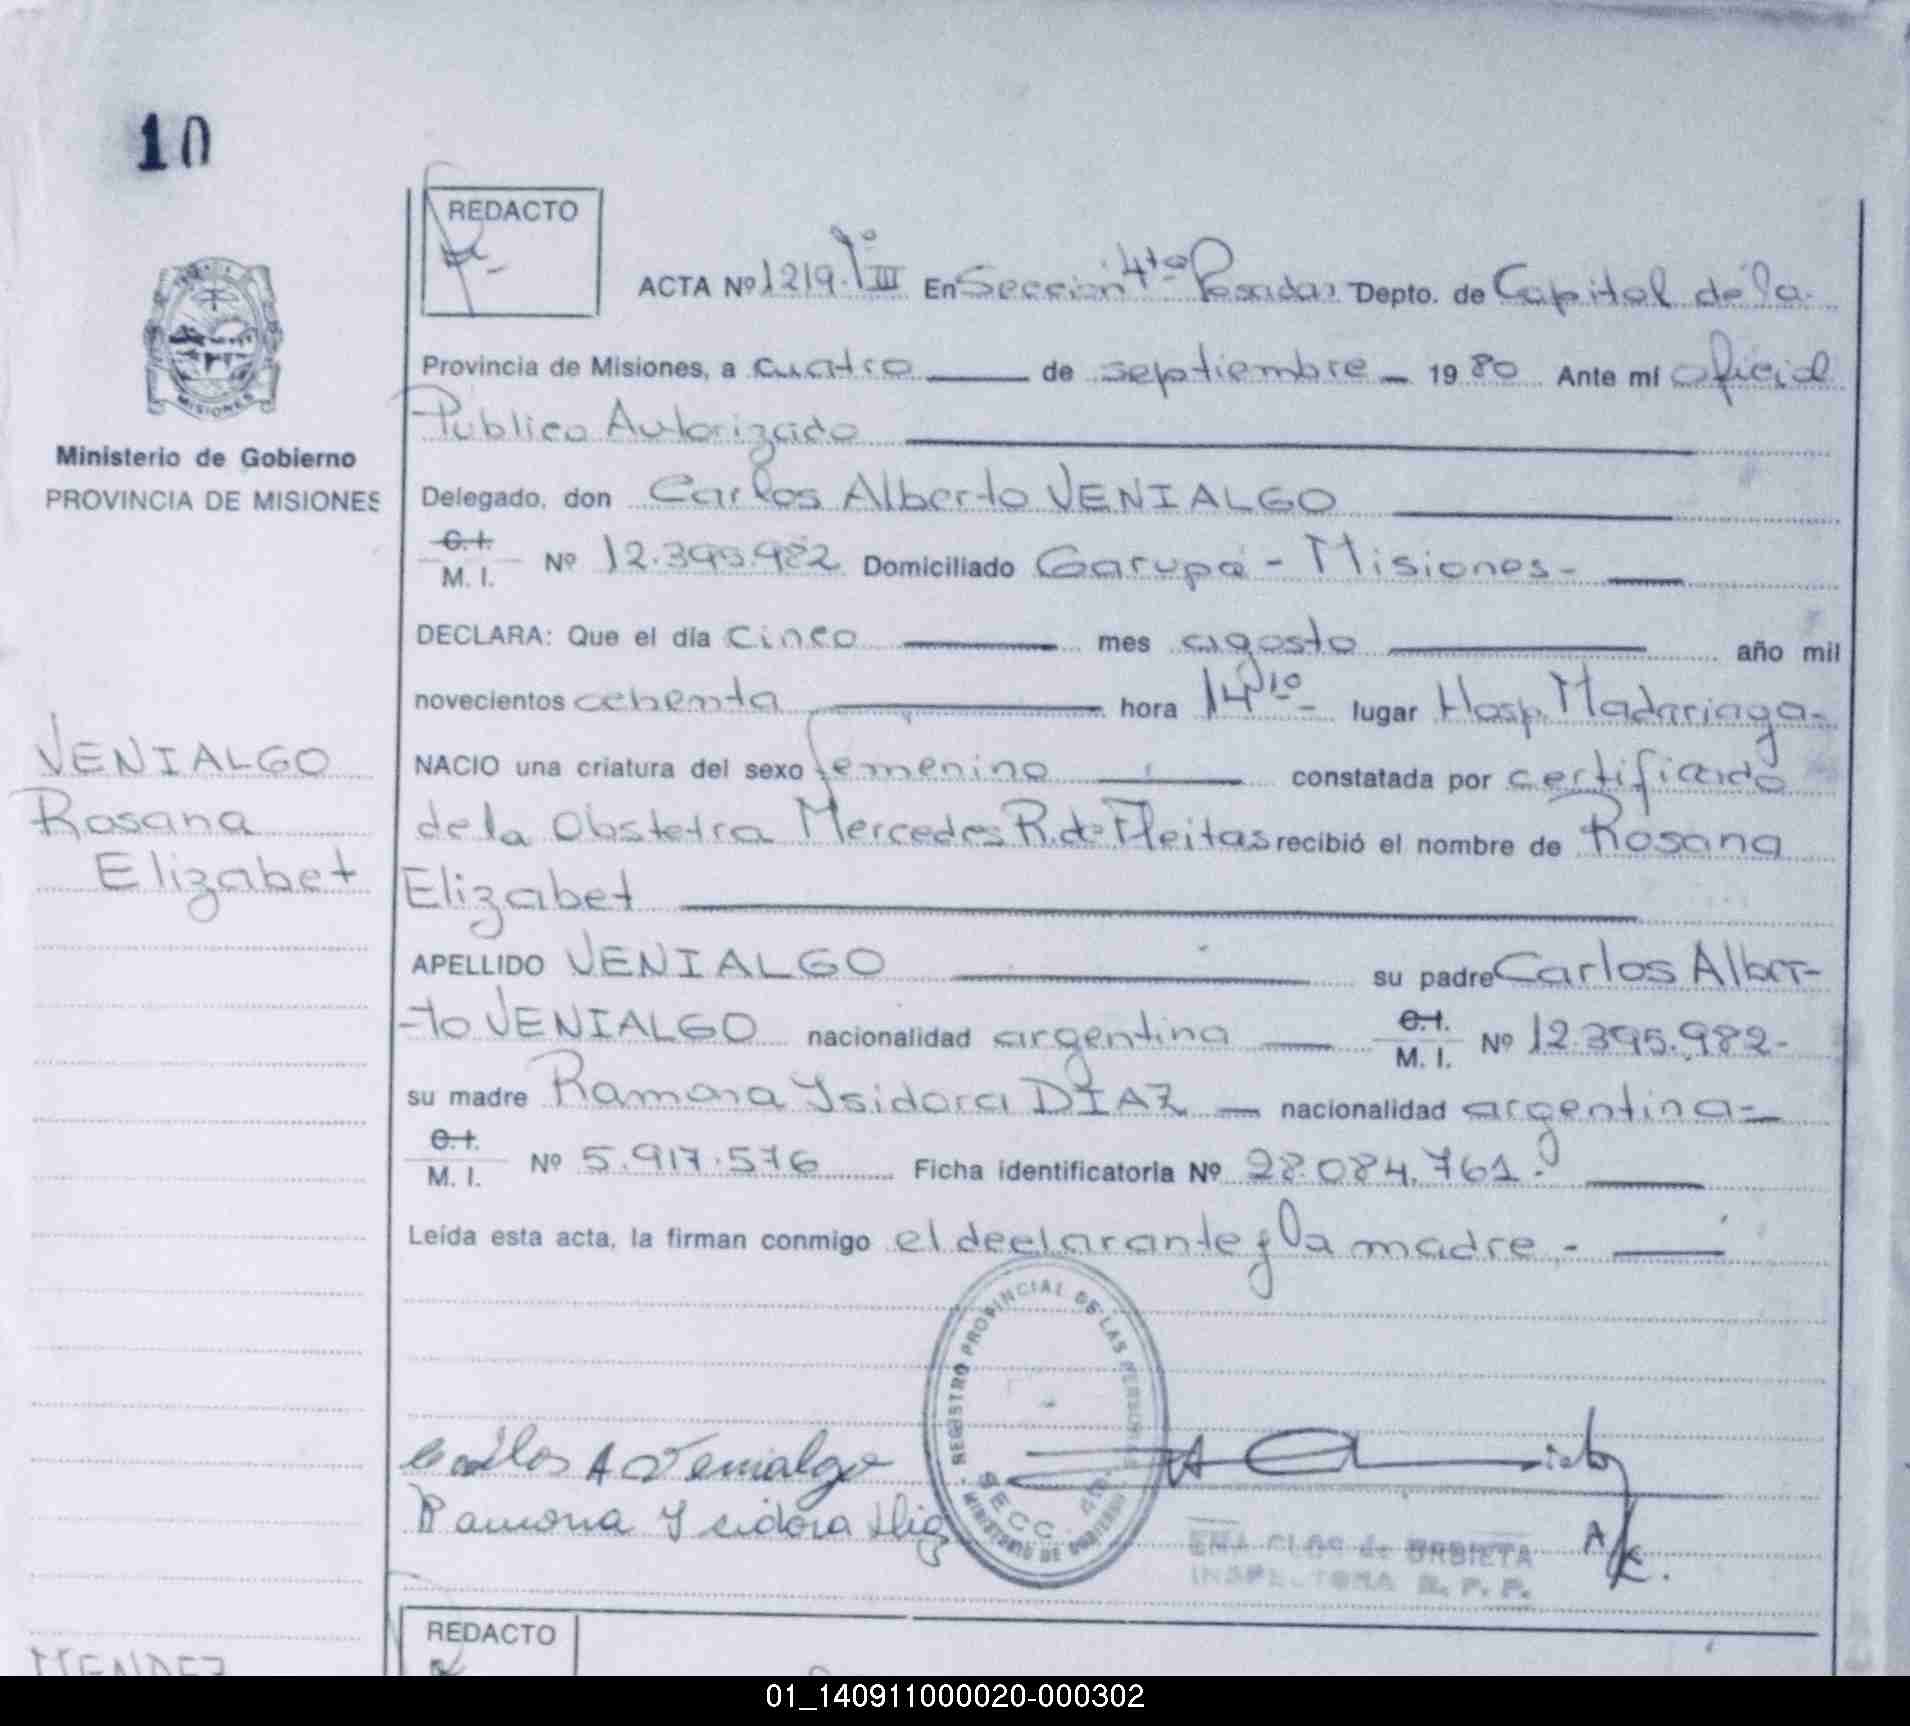 10
REDACTO
ACTA Nº 1219. Tº III En Sección 4ta Posadas Depto. de Capital de la
Provincia de Misiones, a cuatro de septiembre 1980 Ante mí oficial
Público Autorizado
MISIONES
Ministerio de Gobierno
PROVINCIA DE MISIONES
Delegado, don Carlos Alberto VENIALGO
C.I.
M. I. Nº 12.395.982 Domiciliado Garupá - Misiones-
DECLARA: Que el día cinco mes agosto año mil
novecientos ochenta hora 14 10 lugar Hosp. Madariaga-
VENIALGO
Rosana
Elizabet
NACIO una criatura del sexo femenino constatada por certificado
de la Obstetra Mercedes R. de Fleitas recibió el nombre de Rosana
Elizabet
APELLIDO VENIALGO su padre Carlos Alber-
-to VENIALGO nacionalidad argentina C.I.
M. I. Nº 12.395.982-
su madre Ramona Ysidora DIAZ nacionalidad argentina-
C.I.
M. I. Nº 5.917.576 Ficha identificatoria Nº 28.084.761.-
Leída esta acta, la firman conmigo el declarante y la madre.-
REGISTRO PROVINCIAL DE LAS PERSONAS
SECC. 4ta
MINISTERIO DE GOBIERNO
Carlos A Venialgo
Ramona Ysidora Diaz
CLOS de URBIETA
INSPECTORA R. P. P.
REDACTO
MENDEZ
01_140911000020-000302